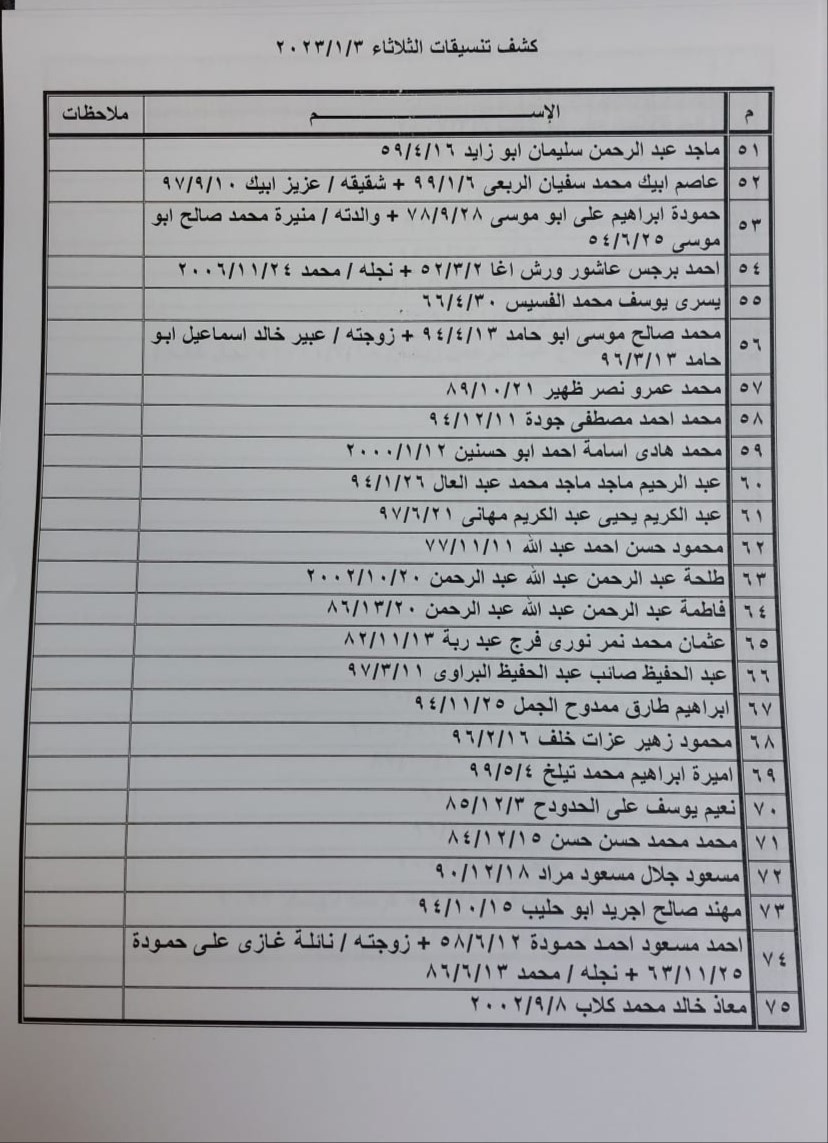 كشف تنسيقات الثلاثاء ٢٠٢٣/١/٣
م الإســـــــــم ملاحظات
٥١ ماجد عبد الرحمن سليمان ابو زايد ٥٩/٤/١٦
٥٢ عاصم ابيك محمد سفيان الربعى ٩٩/١/٦ + شقيقه / عزيز ابيك ٩٧/٩/١٠
٥٣ حمودة ابراهيم على ابو موسى ٧٨/٩/٢٨ + والدته / منيرة محمد صالح ابو
موسى ٥٤/٦/٢٥
٥٤ احمد برجس عاشور ورش اغا ٥٢/٣/٢ + نجله / محمد ٢٠٠٦/١١/٢٤
٥٥ يسرى يوسف محمد الفسيس ٦٦/٤/٣٠
٥٦ محمد صالح موسى ابو حامد ٩٤/٤/١٣ + زوجته / عبير خالد اسماعيل ابو
حامد ٩٦/٣/١٣
٥٧ محمد عمرو نصر ظهير ٨٩/١٠/٢١
٥٨ محمد احمد مصطفى جودة ٩٤/١٢/١١
٥٩ محمد هادى اسامة احمد ابو حسنين ٢٠٠٠/١/١٢
٦٠ عبد الرحيم ماجد ماجد محمد عبد العال ٩٤/١/٢٦
٦١ عبد الكريم يحيى عبد الكريم مهانى ٩٧/٦/٢١
٦٢ محمود حسن احمد عبد الله ٧٧/١١/١١
٦٣ طلحة عبد الرحمن عبد الله عبد الرحمن ٢٠٠٢/١٠/٢٠
٦٤ فاطمة عبد الرحمن عبد الله عبد الرحمن ٨٦/١٣/٢٠
٦٥ عثمان محمد نمر نورى فرج عبد ربة ٨٢/١١/١٣
٦٦ عبد الحفيظ صائب عبد الحفيظ البراوى ٩٧/٣/١١
٦٧ ابراهيم طارق ممدوح الجمل ٩٤/١١/٢٥
٦٨ محمود زهير عزات خلف ٩٦/٢/١٦
٦٩ اميرة ابراهيم محمد تيلخ ٩٩/٥/٤
٧٠ نعيم يوسف على الحدودح ٨٥/١٢/٣
٧١ محمد محمد حسن حسن ٨٤/١٢/١٥
٧٢ مسعود جلال مسعود مراد ٩٠/١٢/١٨
٧٣ مهند صالح اجريد ابو حليب ٩٤/١٠/١٥
٧٤ احمد مسعود احمد حمودة ٥٨/٦/١٢ + زوجته / نائلة غازى على حمودة
٦٣/١١/٢٥ + نجله / محمد ٨٦/٦/١٣
٧٥ معاذ خالد محمد كلاب ٢٠٠٢/٩/٨